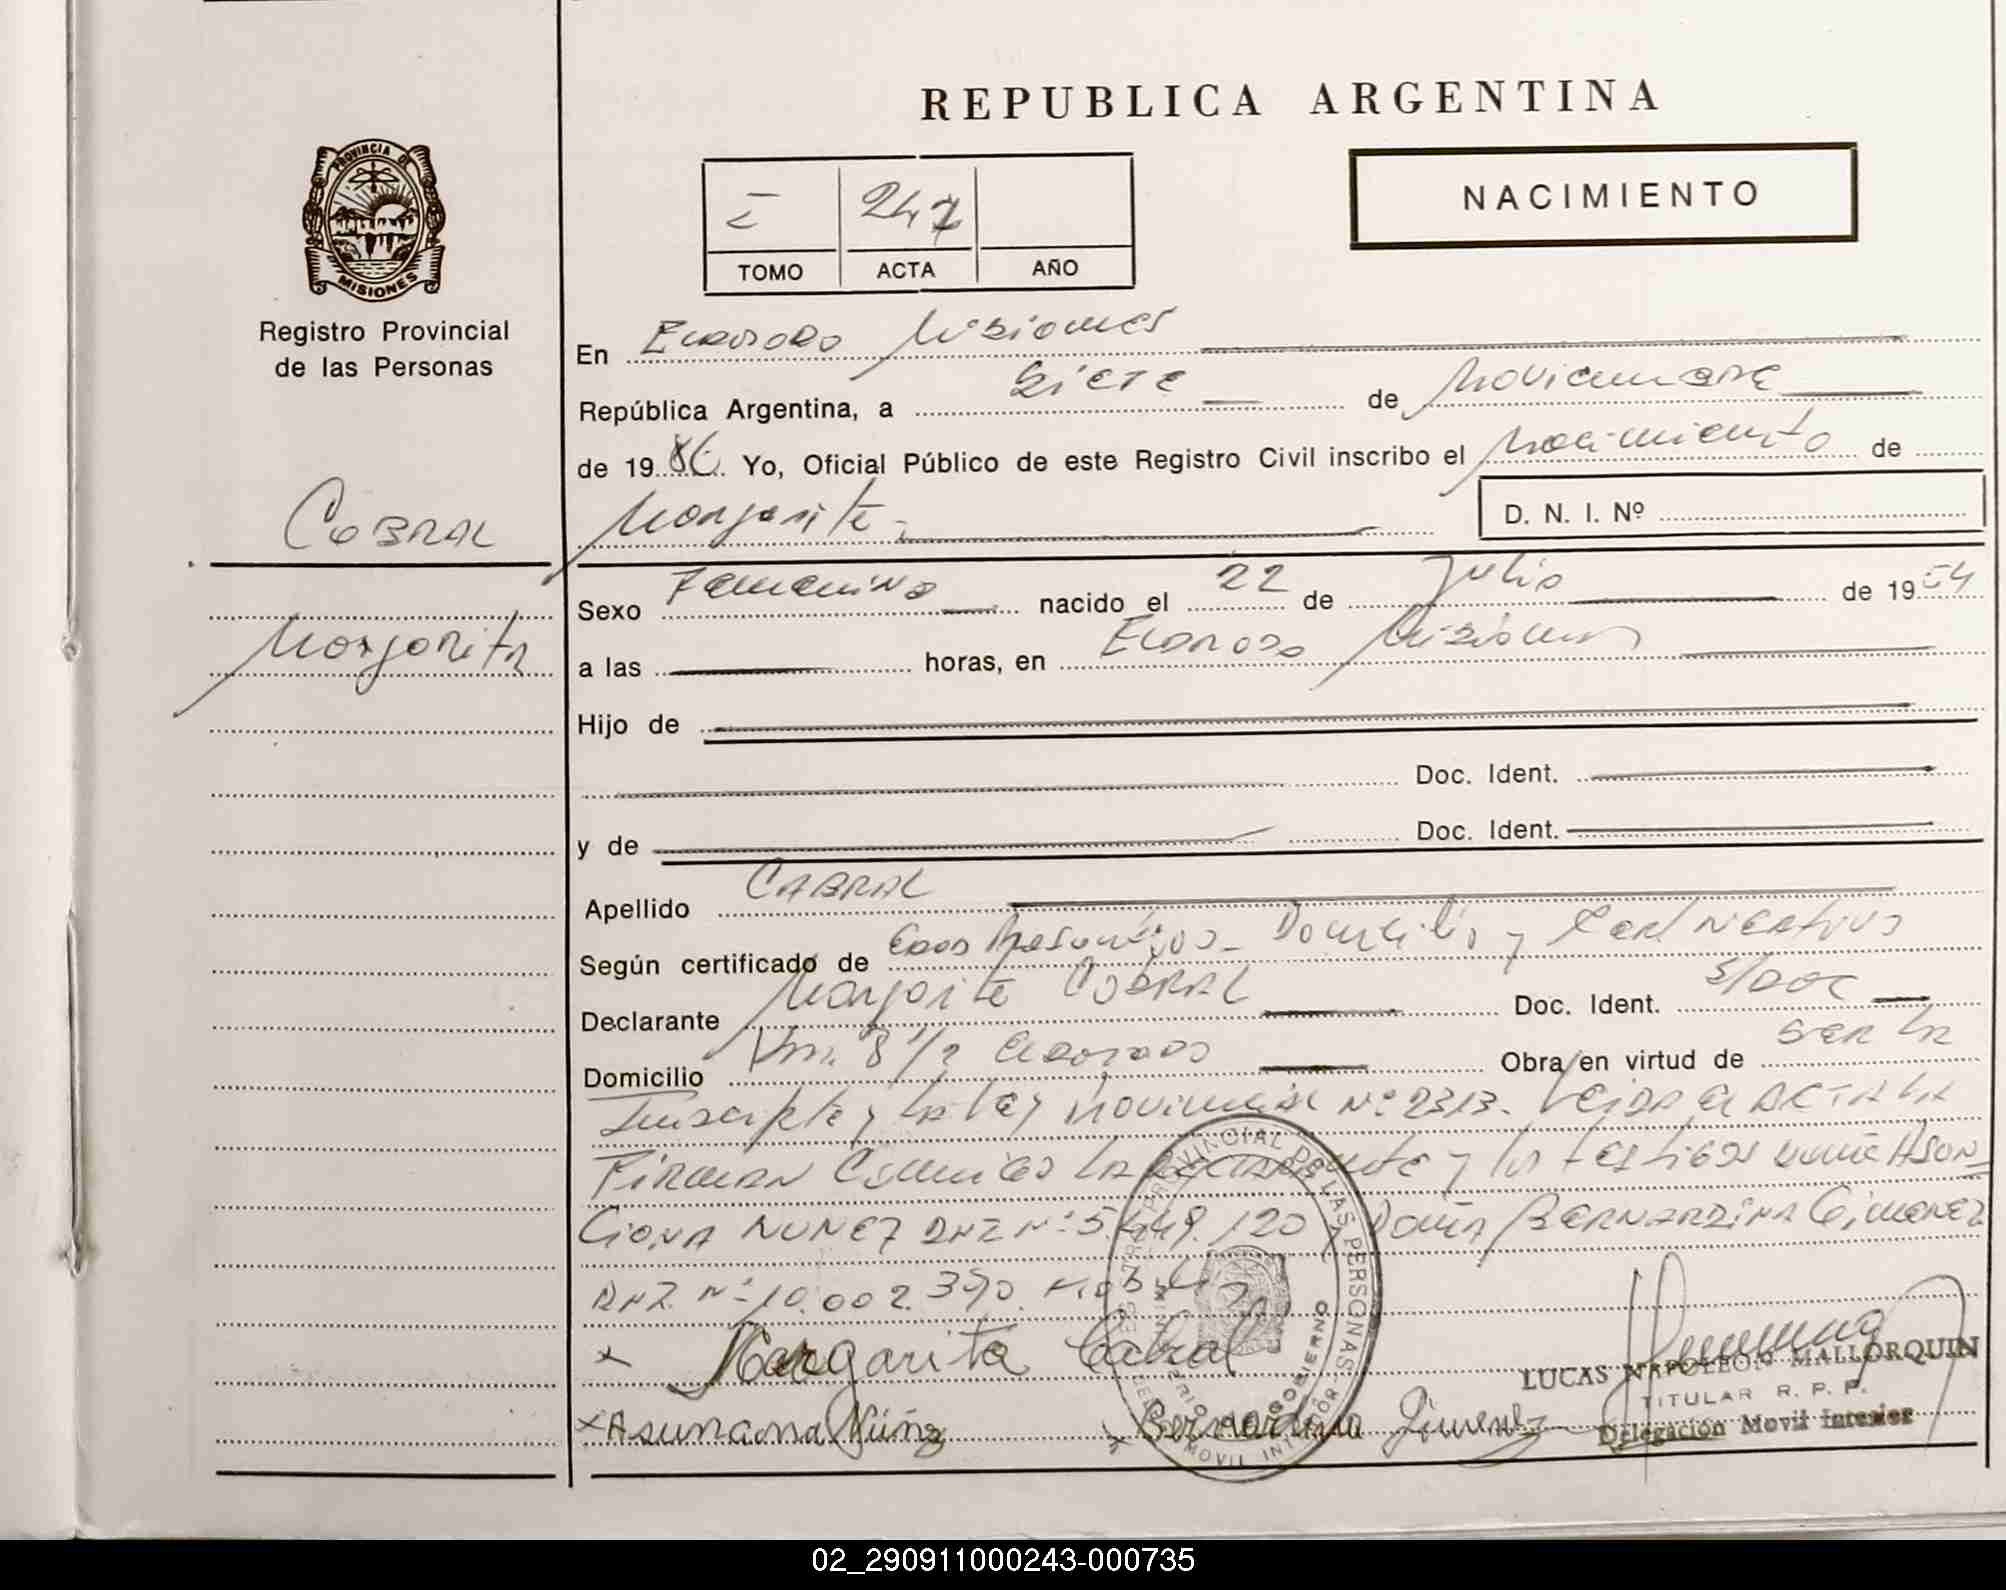 REPUBLICA ARGENTINA
NACIMIENTO
247
TOMO ACTA AÑO
PROVINCIA DE
MISIONES
Registro Provincial
de las Personas
CABRAL
Margarita
En Eldorado Misiones
República Argentina, a Siete de Noviembre
de 1986 Yo, Oficial Público de este Registro Civil inscribo el Nacimiento de
Margarita
D. N. I. Nº
Sexo Femenino nacido el 22 de Julio de 1954
a las horas, en Eldorado Misiones
Hijo de
Doc. Ident.
y de Doc. Ident.
Apellido CABRAL
Según certificado de Edad Domicilio y Cert Negativo
Declarante Margarita CABRAL Doc. Ident. S/DOC
Domicilio Km. 8 1/2 Eldorado Obra en virtud de SER LA
Inscripta y la ley Provincial Nº 2313. LEIDA EL ACTA LA
FIRMAN Conmigo LA DECLARANTE y los testigos DOÑA ASUN
CIONA NUNEZ DNI Nº 5.449.120 y DOÑA BERNARDINA Gimenez
DNI Nº 10.002.390.
x Margarita Cabral
x Asunciona Núñez x Bernardina Gimenez
LUCAS NAPOLEON MALLORQUIN
TITULAR R. P. P.
Delegación Movil Interior
PROVINCIAL DE LAS PERSONAS
GOBIERNO
MOVIL INTERIOR
02_290911000243-000735